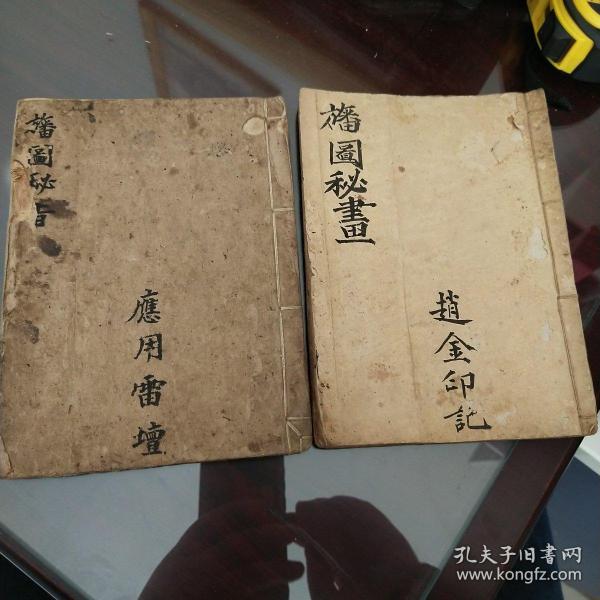 旛圖秘旨
應用雷壇
旛圖秘畫
趙金印記
孔夫子旧书网
www.kongfz.com